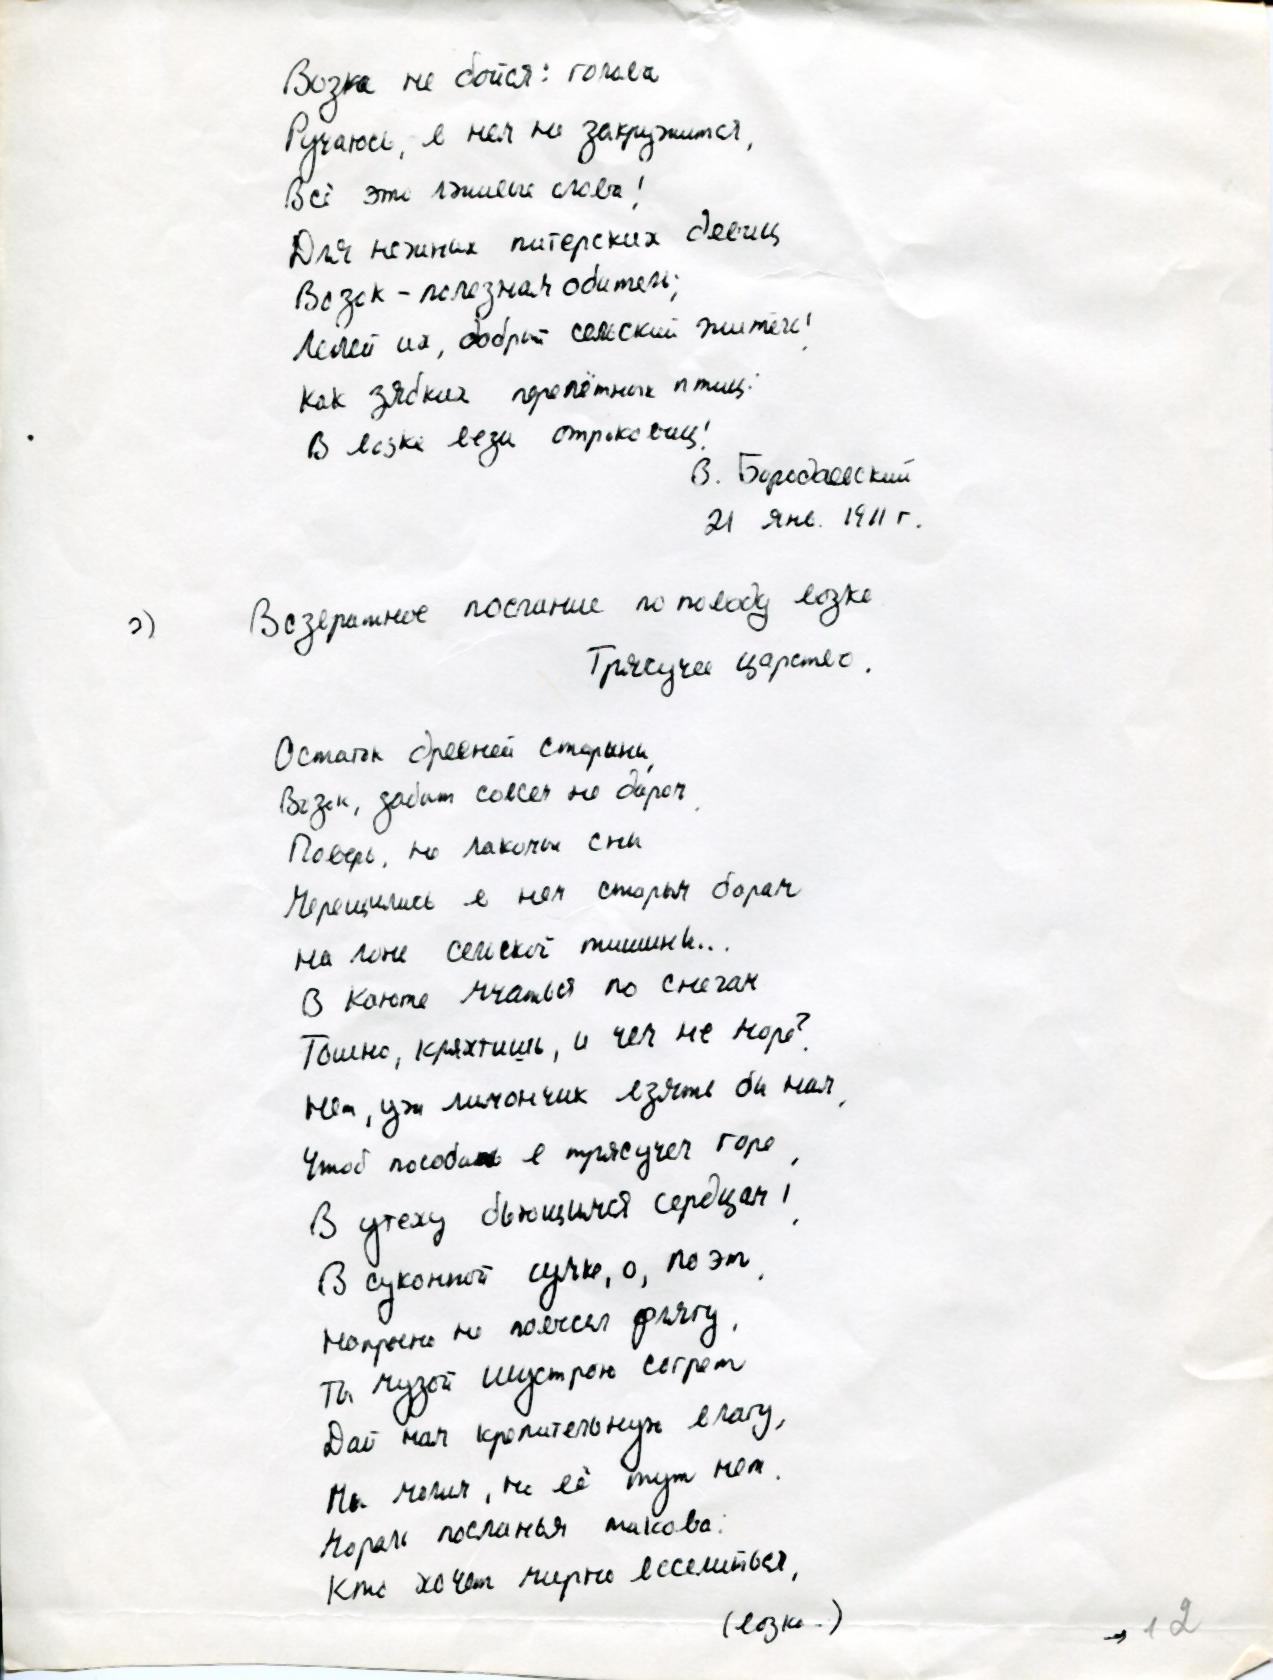 Возка не бойся: голова
Ручаюсь, в нем не закружится,
Всё это лживые слова!
Для нежных питерских девиц
Возок – полезная обитель;
Лелей их, добрый сельский житель!
Как зябких перелётных птиц:
В возке вези отроковиц!
В. Бородаевский
21 янв. 1911 г.
2) Возвратное послание по поводу возка
Трясучее царство.
Остаток древней старины,
Возок, забыт совсем не даром,
Поверь, не лакомые сны
Мерещились в нем старым барам
На лоне сельской тишины...
В каюте мчаться по снегам
Тошно, кряхтишь, и чем не море?
Нет, уж лимончик взять бы нам,
Чтоб пособить в трясучем горе,
В утеху бьющимся сердцам!
В суконной сумке, о, поэт,
Напрасно не повесил флягу,
Ты музой шустрою согрет
Дай нам крепительную влагу,
Мы молим, но её тут нет.
Мораль посланья такова:
Кто хочет мирно веселиться,
(возка..)
→ 2